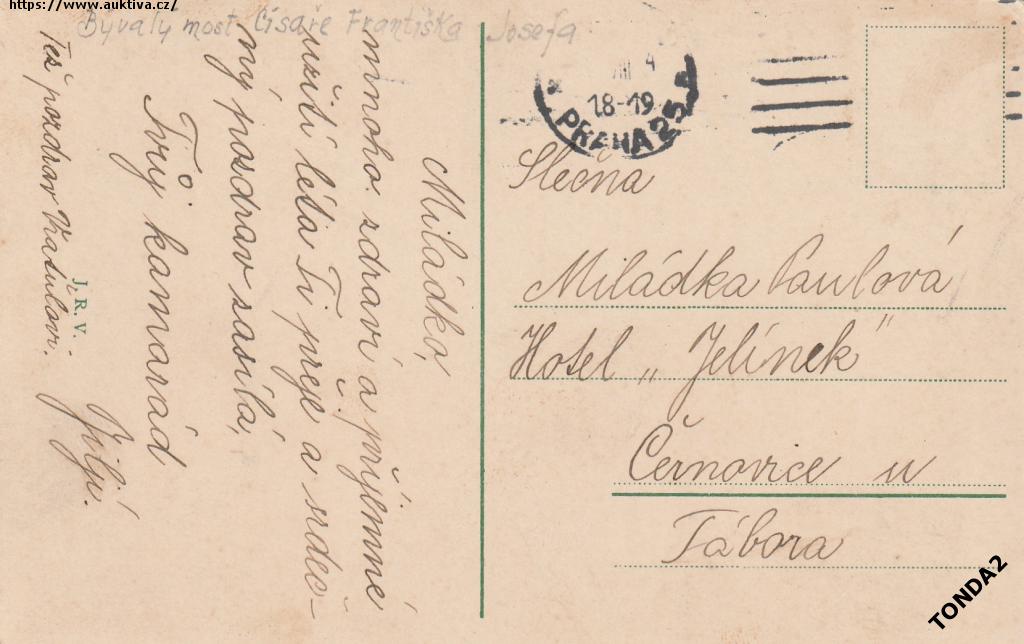 https://www.auktiva.cz/
Bývalý most Císaře Františka Josefa
Miládko,
mnoho zdraví a příjemné
užití léta Ti přeje a srdeč-
ný pozdrav zasílá,
Tvůj kamarád
Jiljí.
Též pozdrav Vašulovi.
J. R. V.
VIII 4
18-19
PRAHA 25
Slečna
Miládka Paulová
Hotel „Jelínek"
Černovice u
Tábora
TONDA2